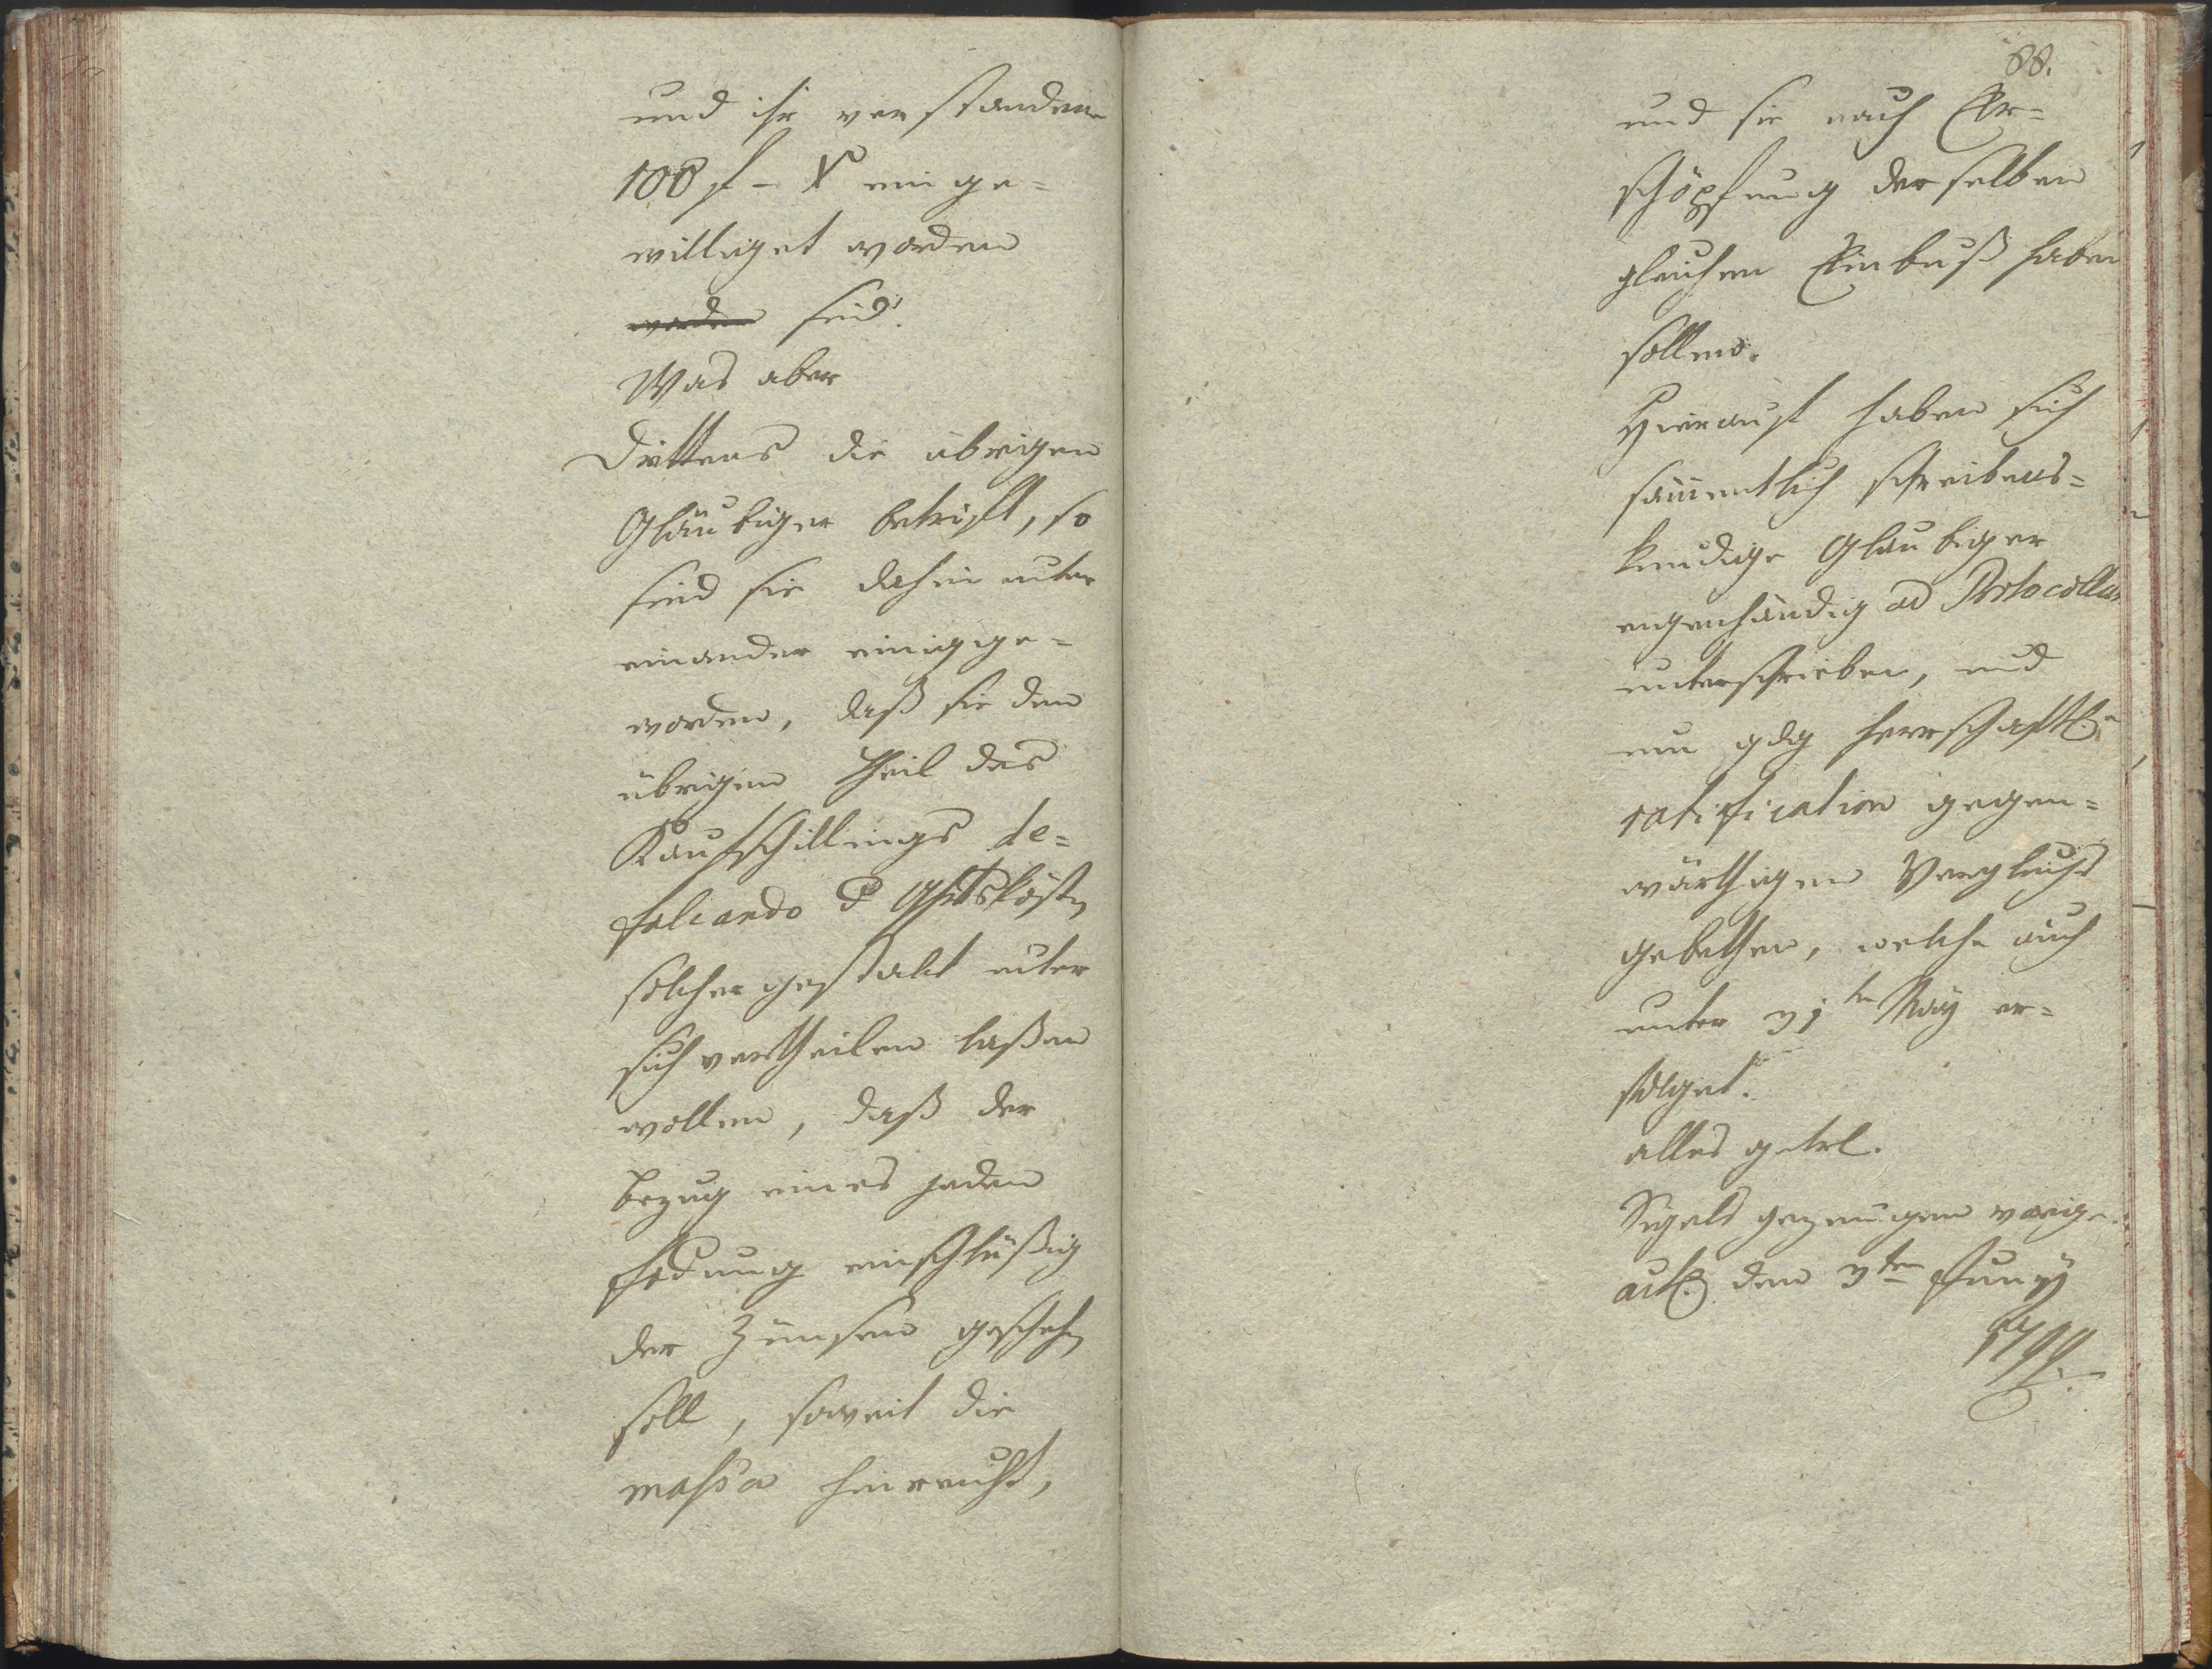 und ihr verstandene
100 f – X einge=
williget worden
worden sind.
Was aber
Drittens die übrigen
Gläubiger betrift, so
sind sie dahin unter
einander einig ge=
worden, daß sie den
übrigen Theil des
Kaufschillings de=
falcando d Ghtskösten
solchergestalt unter
sich vertheilen laßen
wollen, daß der
bezug eines jeden
Fodrung einschlüßig
der Zünsen geschehen
soll, soweit die
massa hinreicht,
88.
und sie nach Er=
schöpfung derselben
gleichen Einbuß haben
sollen.
Hierauf haben sich
sämentlich schreibens=
kundige Gläubiger
eigenhändig ad Protocollum
unterschrieben, und
um gdg herrschaftl.
ratification gegen=
wärthigen Vergleichs
gebethen, welche auch
unter 31ten May er=
folget.
alles getrl.
Sigels gezeugen vorige.
act. den 3ten Junÿ
1799.